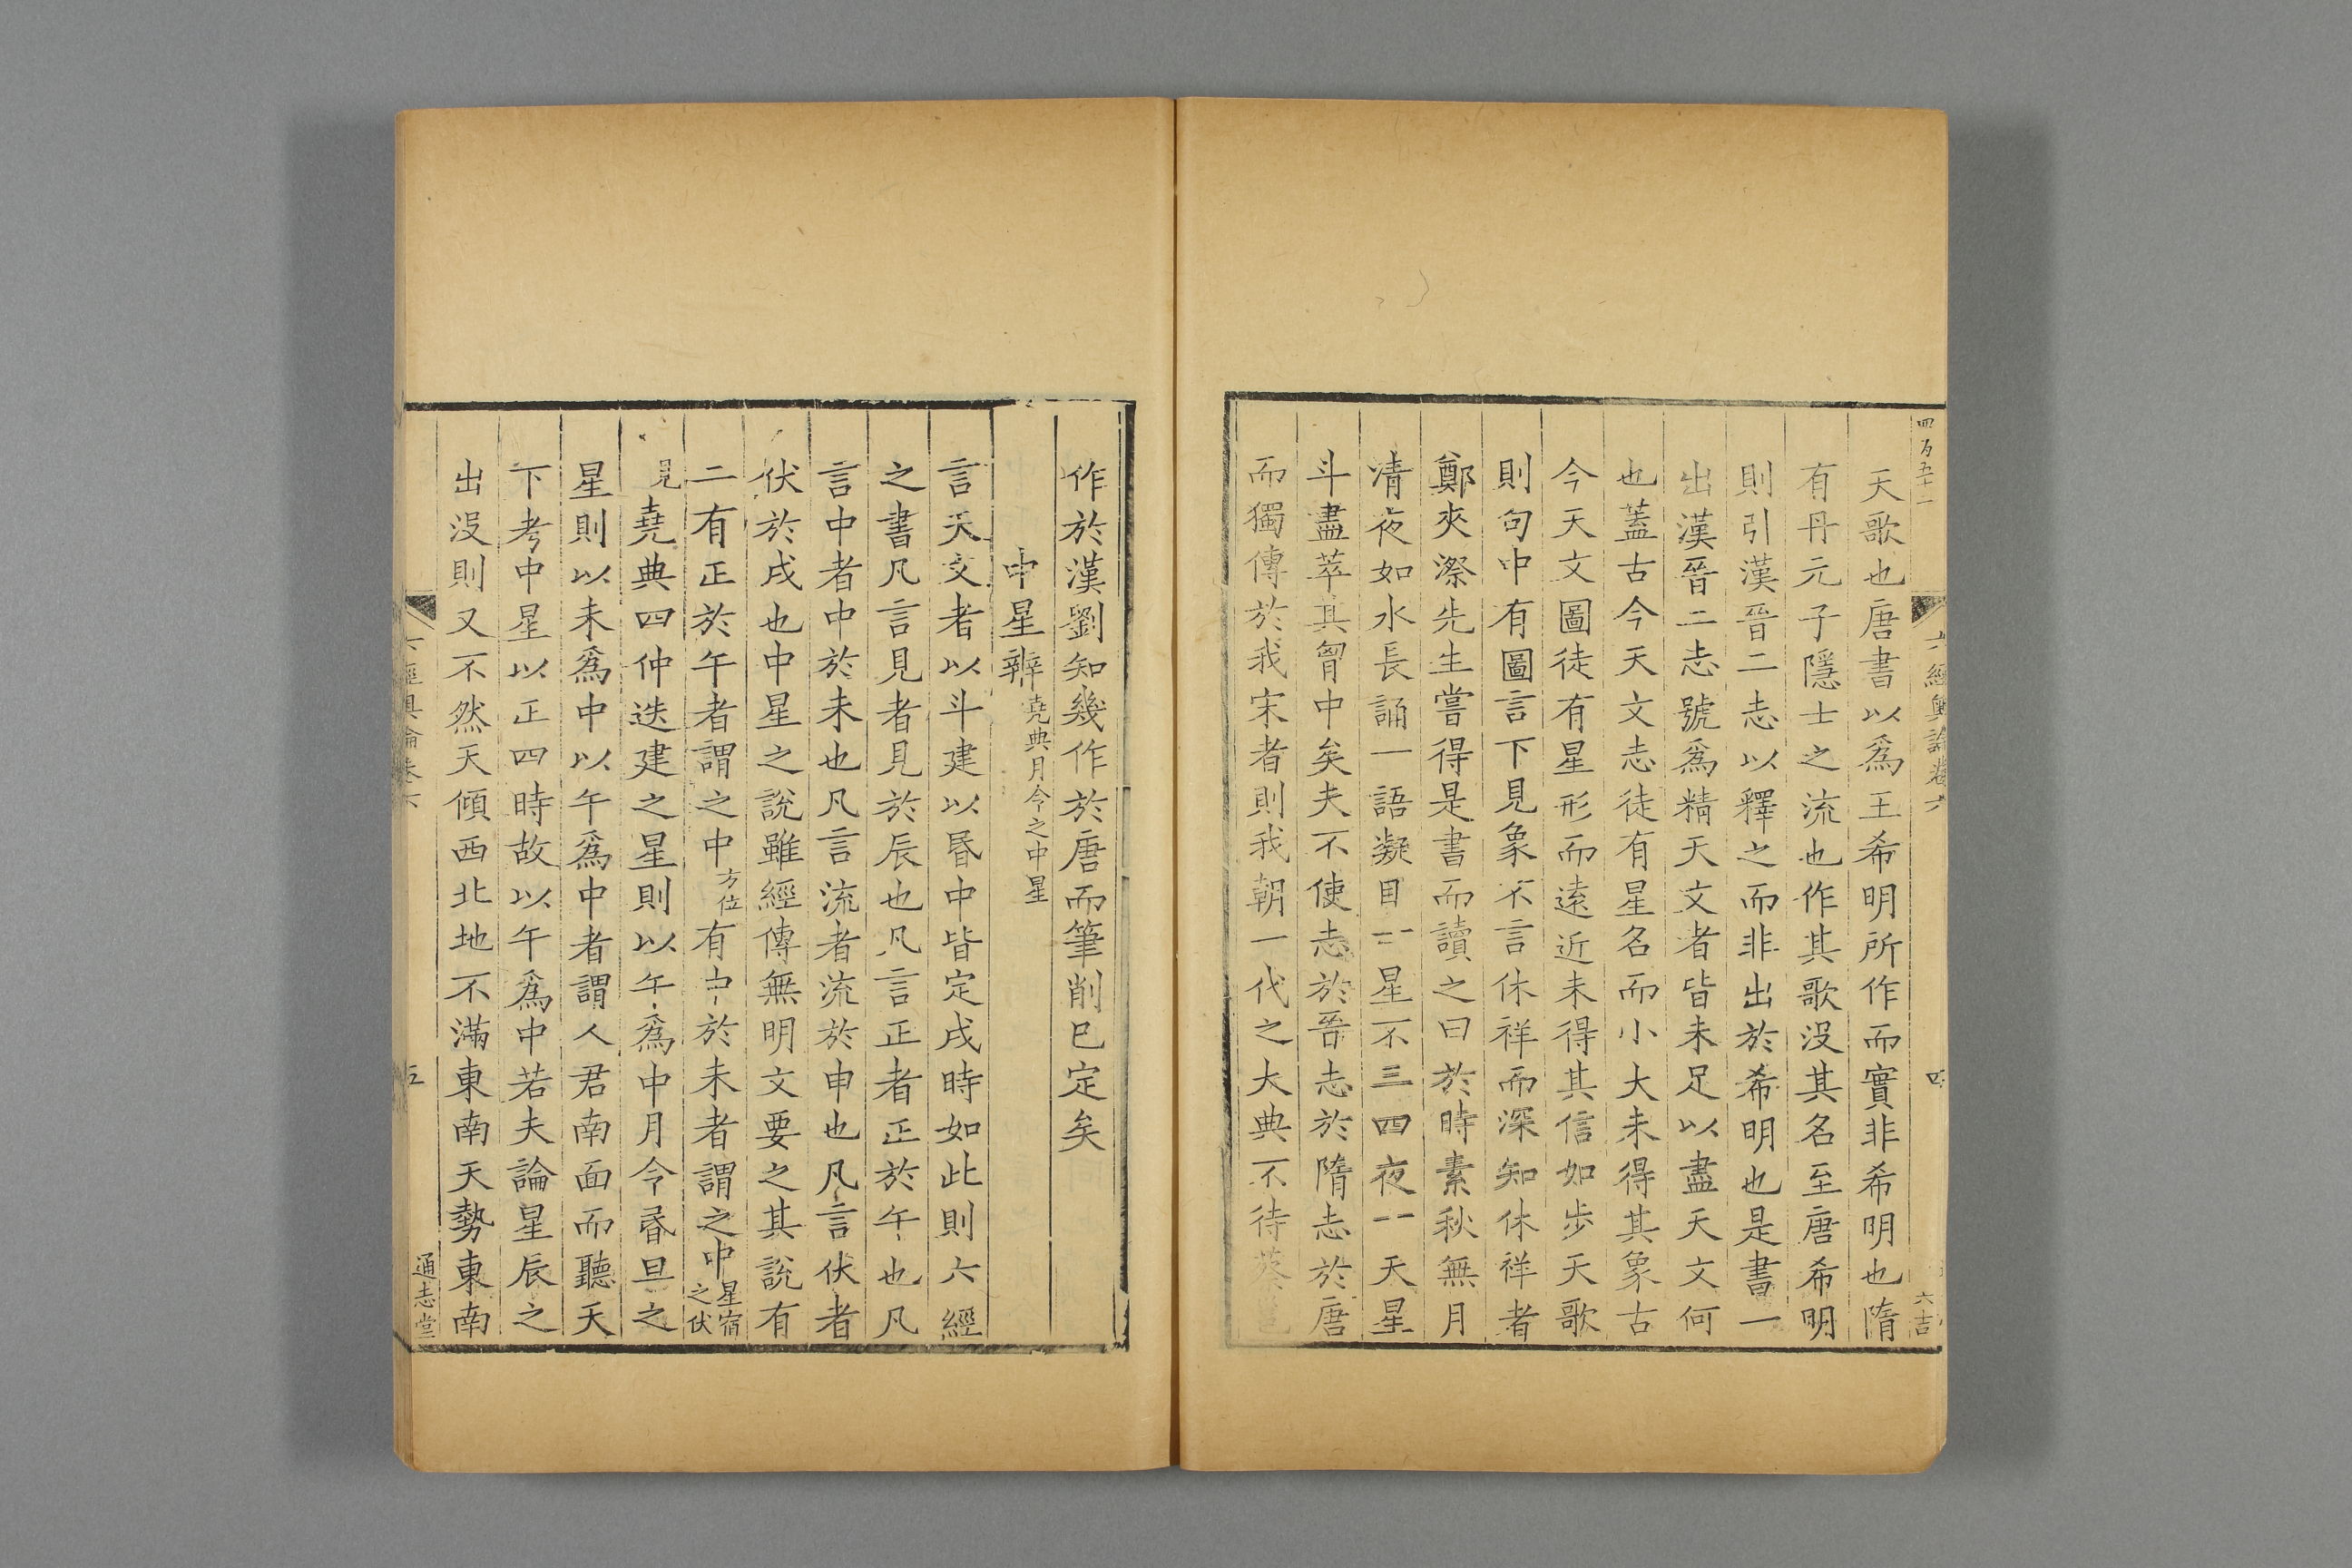 四百五十一
六經奧論卷六
四
六吉
天歌也唐書以爲王希明所作而實非希明也隋
有丹元子隱士之流也作其歌沒其名至唐希明
則引漢晉二志以釋之而非出於希明也是書一
出漢晉二志號爲精天文者皆未足以盡天文何
也蓋古今天文志徒有星名而小大未得其象古
今天文圖徒有星形而遠近未得其信如步天歌
則句中有圖言下見象不言休祥而深知休祥者
鄭夾漈先生嘗得是書而讀之曰於時素秋無月
清夜如水長誦一語凝目一星不三四夜一天星
斗盡萃其胷中矣夫不使志於晉志於隋志於唐
而獨傳於我宋者則我朝一代之大典不待蔡邕
作於漢劉知幾作於唐而筆削已定矣
中星辨堯典月令之中星
言天文者以斗建以昬中皆定戌時如此則六經
之書凡言見者見於辰也凡言正者正於午也凡
言中者中於未也凡言流者流於申也凡言伏者
伏於戌也中星之說雖經傳無明文要之其說有
二有正於午者謂之中方位有中於未者謂之中星宿之伏
見堯典四仲迭建之星則以午爲中月令昬旦之
星則以未爲中以午爲中者謂人君南面而聽天
下考中星以正四時故以午爲中若夫論星辰之
出沒則又不然天傾西北地不滿東南天勢東南
六經奧論卷六
五
通志堂